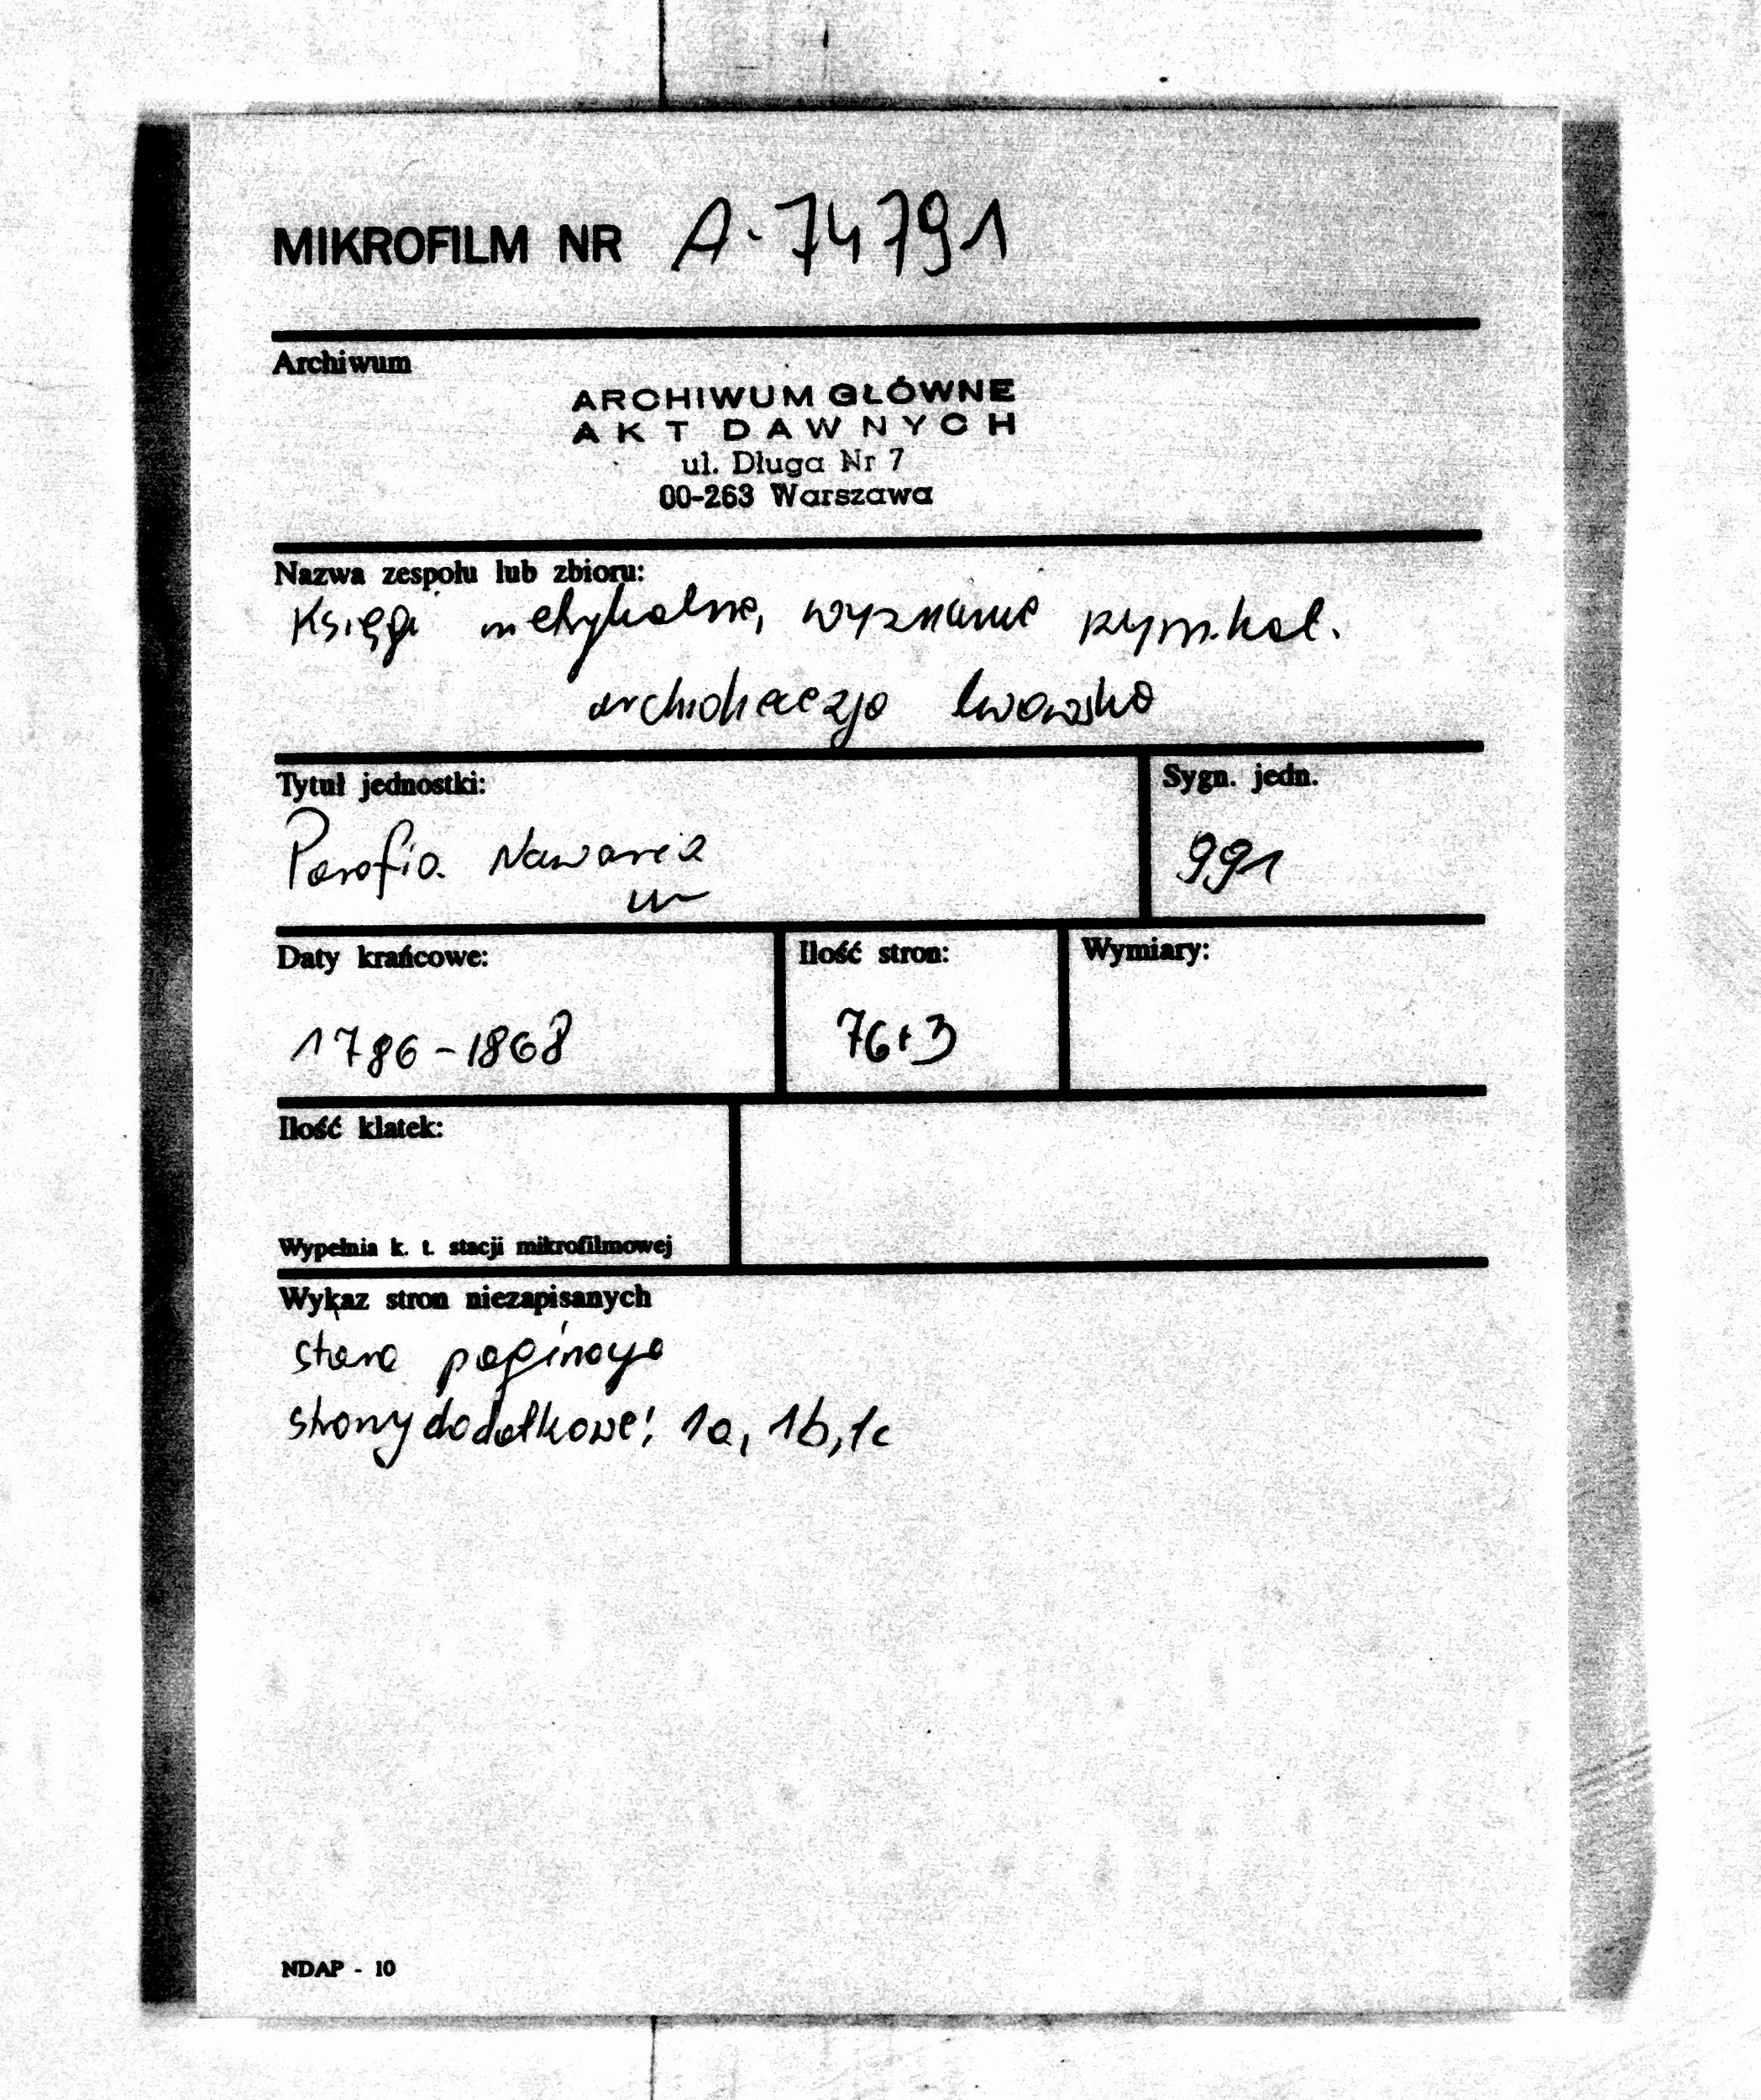 MIKROFILM NR A-74791
Archiwum
ARCHIWUM GŁÓWNE
AKT DAWNYCH
ul. Długa Nr 7
00-263 Warszawa
Nazwa zespołu lub zbioru:
Księgi metrykalne, wyznanie rzym.kat.
archidiecezja lwowska
Tytuł jednostki:
Parafia Nawaria
Sygn. jedn.
991
Daty krańcowe:
1786-1868
Ilość stron:
76+3
Wymiary:
Ilość klatek:
Wypełnia k. t. stacji mikrofilmowej
Wykaz stron niezapisanych
stara paginacja
strony dodatkowe: 1a, 1b, 1c
NDAP - 10